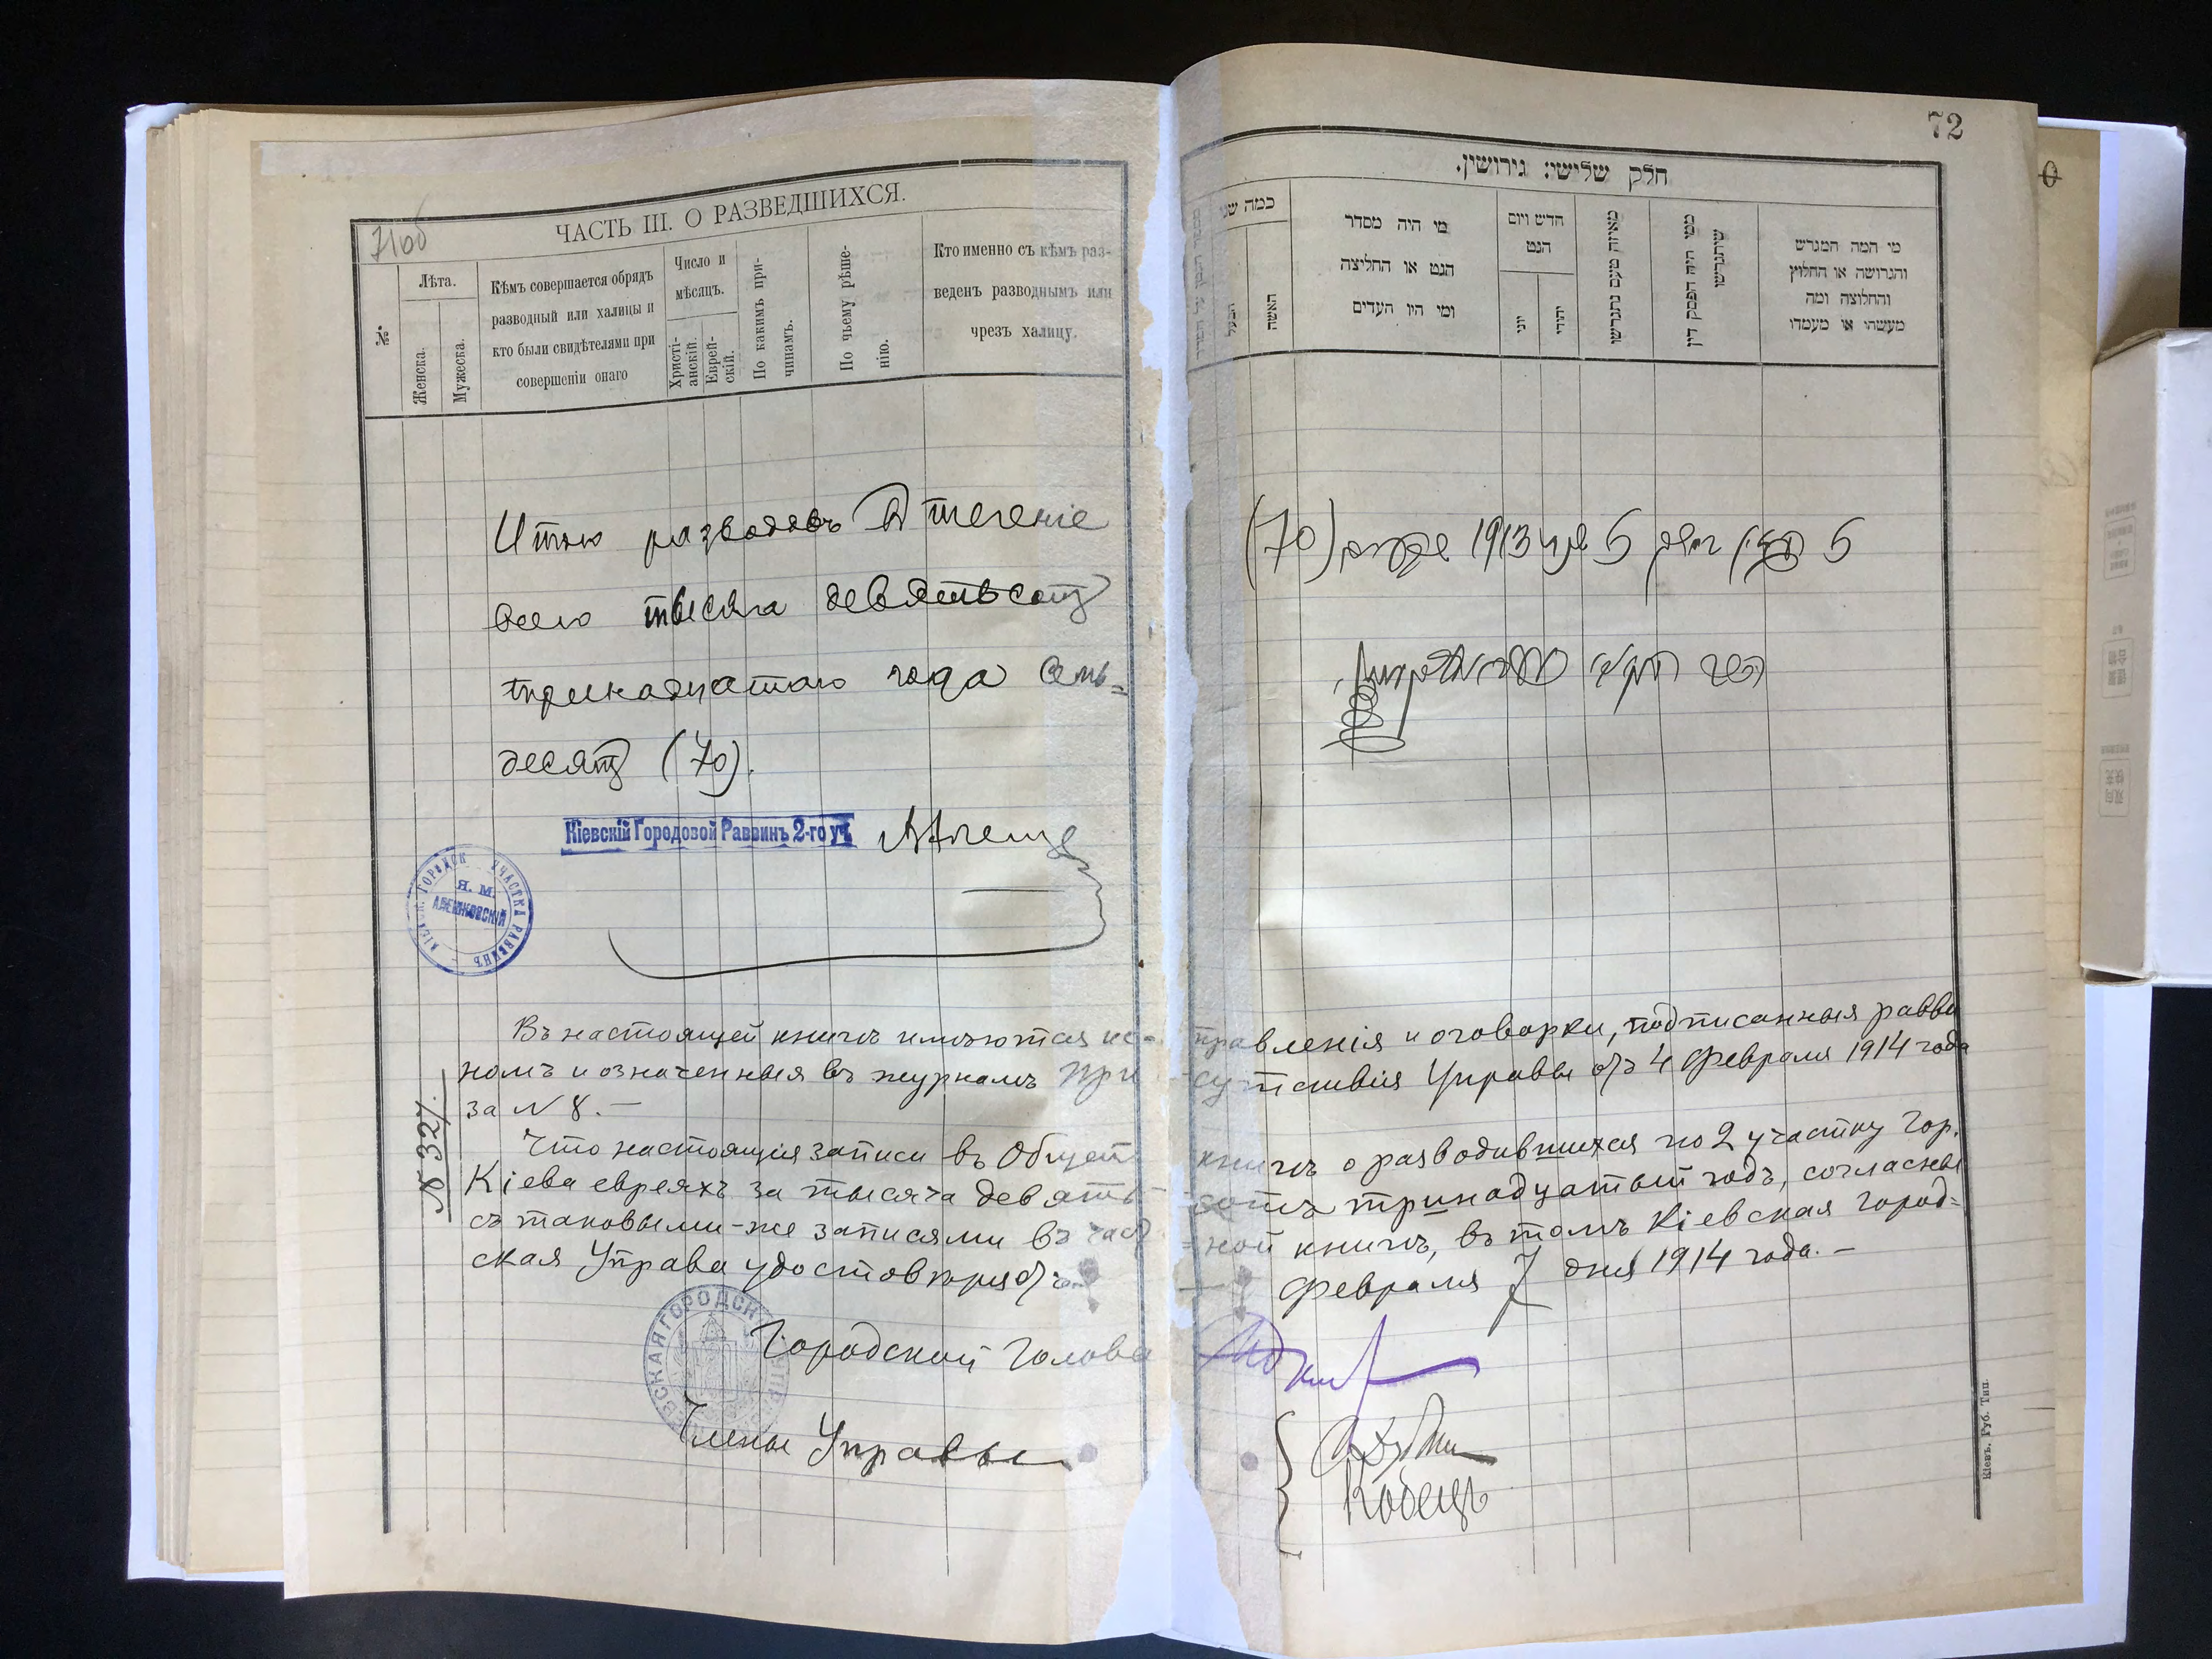 71об
ЧАСТЬ III. О РАЗВЕДШИХСЯ.
№
Лѣта.
Женска.
Мужеска.
Кѣмъ совершается обрядъ
разводный или халицы и
кто были свидѣтелями при
совершеніи онаго
Число и
мѣсяцъ.
Христі-
анскій.
Еврей-
скій.
По какимъ при-
чинамъ.
По чьему рѣше-
нію.
Кто именно съ кѣмъ раз-
веденъ разводнымъ или
чрезъ халицу.
Итого разводовъ в теченіе
всего тысяча девятьсотъ
тринадцатаго года семь=
десятъ (70).
Кіевскій Городовой Раввинъ 2-го уч
Я. М.
АЛЕШКОВСКІЙ
УЧАСТКА РАВВИНЪ
72
חלק שלישי: גירושין.
כמה שני
הבעל
האשה
מי היה מסדר
הגט או החליצה
ומי היו העדים
חדש ויום
הגט
יוני
יהודי
מאיזה טעם נתגרשו
ממי היה הפסק דין
שיתגרשו
מי המה המגרש
והגרושה או החלוץ
והחלוצה ומה
מעשהו או מעמדו
(70) 1913
Въ настоящей книгѣ имѣются ис-правленія и оговорки, подписанныя равви
номъ и означенныя въ журналѣ При-сутствія Управы отъ 4 Февраля 1914 года
за № 8. —
№ 327.
Что настоящія записи въ Общей книгѣ о разводившихся по 2 участку гор.
Кіева евреяхъ за тысяча девять-сотъ тринадцатый годъ, согласны
съ таковыми-же записями въ част-ной книгѣ, въ томъ Кіевская Город=
ская Управа удостовѣряетъ. Февраля 7 дня 1914 года. —
Городской Голова
Члены Управы
Кіевъ. Губ. Тип.